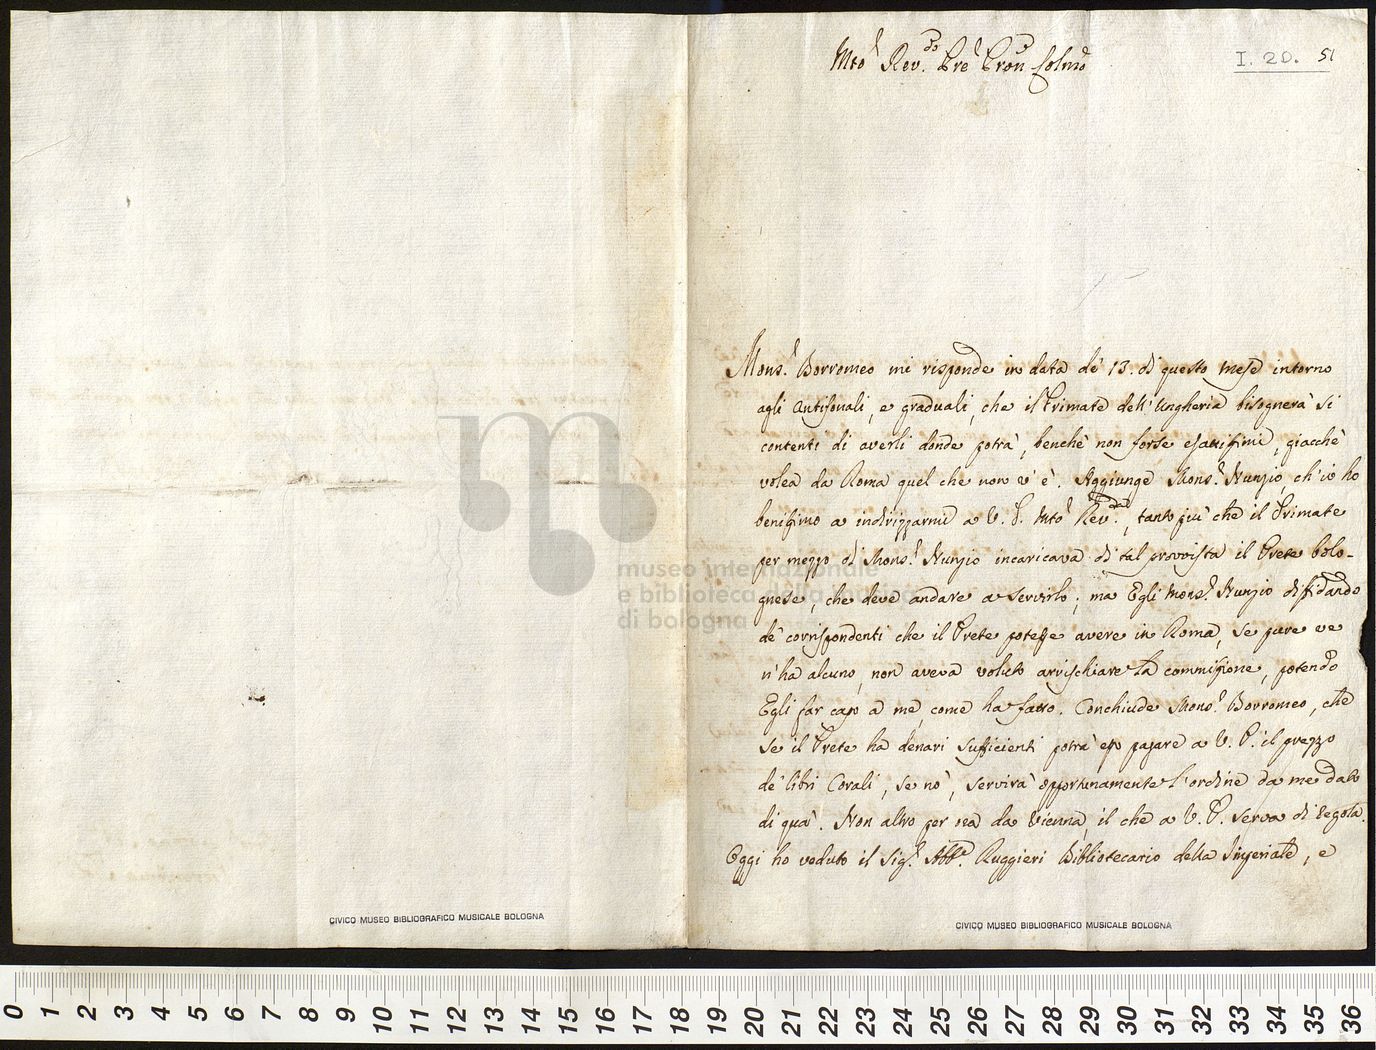 Mto Rev.do Pre Pron Colmo
I. 20. 51
Mons.r Borromeo mi risponde in data de' 13. di questo mese intorno
agli Antifonali, e graduali, che il Primate dell'Ungheria bisognerà si
contenti di averli donde potrà, benchè non forse esattissimi, giacchè
volea da Roma quel che non v'è. Aggiunge Mons.r Nunzio, ch'io ho
benissimo a indirizzarmi a V. P. Mto Rev.da, tanto più che il Primate
per mezzo di Mons.r Nunzio incaricava di tal provvista il Prete bolo-
gnese, che deve andare a servirlo; ma Egli Mons.r Nunzio diffidando
de' corrispondenti che il Prete potesse avere in Roma, se pure ve
n'ha alcuno, non aveva voluto arrischiare la commissione, potendo
Egli far capo a me, come ha fatto. Conchiude Mons.r Borromeo, che
se il Prete ha denari sufficienti potrà esso pagare a V. P. il prezzo
de' libri Corali, se nò, servirà opportunamente l'ordine da me dato
di quà. Non altro per ora da Vienna, il che a V. P. serva di regola.
Oggi ho veduto il Sig.r Abb.e Ruggieri Bibliotecario della Imperiale, e
museo internazionale
e biblioteca della musica
di bologna
CIVICO MUSEO BIBLIOGRAFICO MUSICALE BOLOGNA
CIVICO MUSEO BIBLIOGRAFICO MUSICALE BOLOGNA
0 1 2 3 4 5 6 7 8 9 10 11 12 13 14 15 16 17 18 19 20 21 22 23 24 25 26 27 28 29 30 31 32 33 34 35 36